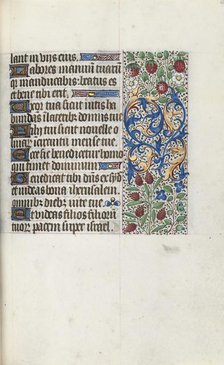 lant in viis eius.
Labores manuum tuarum
quia manducabis: beatus es
et bene tibi erit.
Uxor tua sicut vitis ha
bundans in lateribus domus tue
Filii tui sicut novelle o
livarum in circuitu mense tue.
Ecce sic benedicetur homo
qui timet dominum
Benedicat tibi dominus ex syon
et videas bona iherusalem
omnibus diebus vite tue.
Et videas filios filiorum
tuorum pacem super israel.